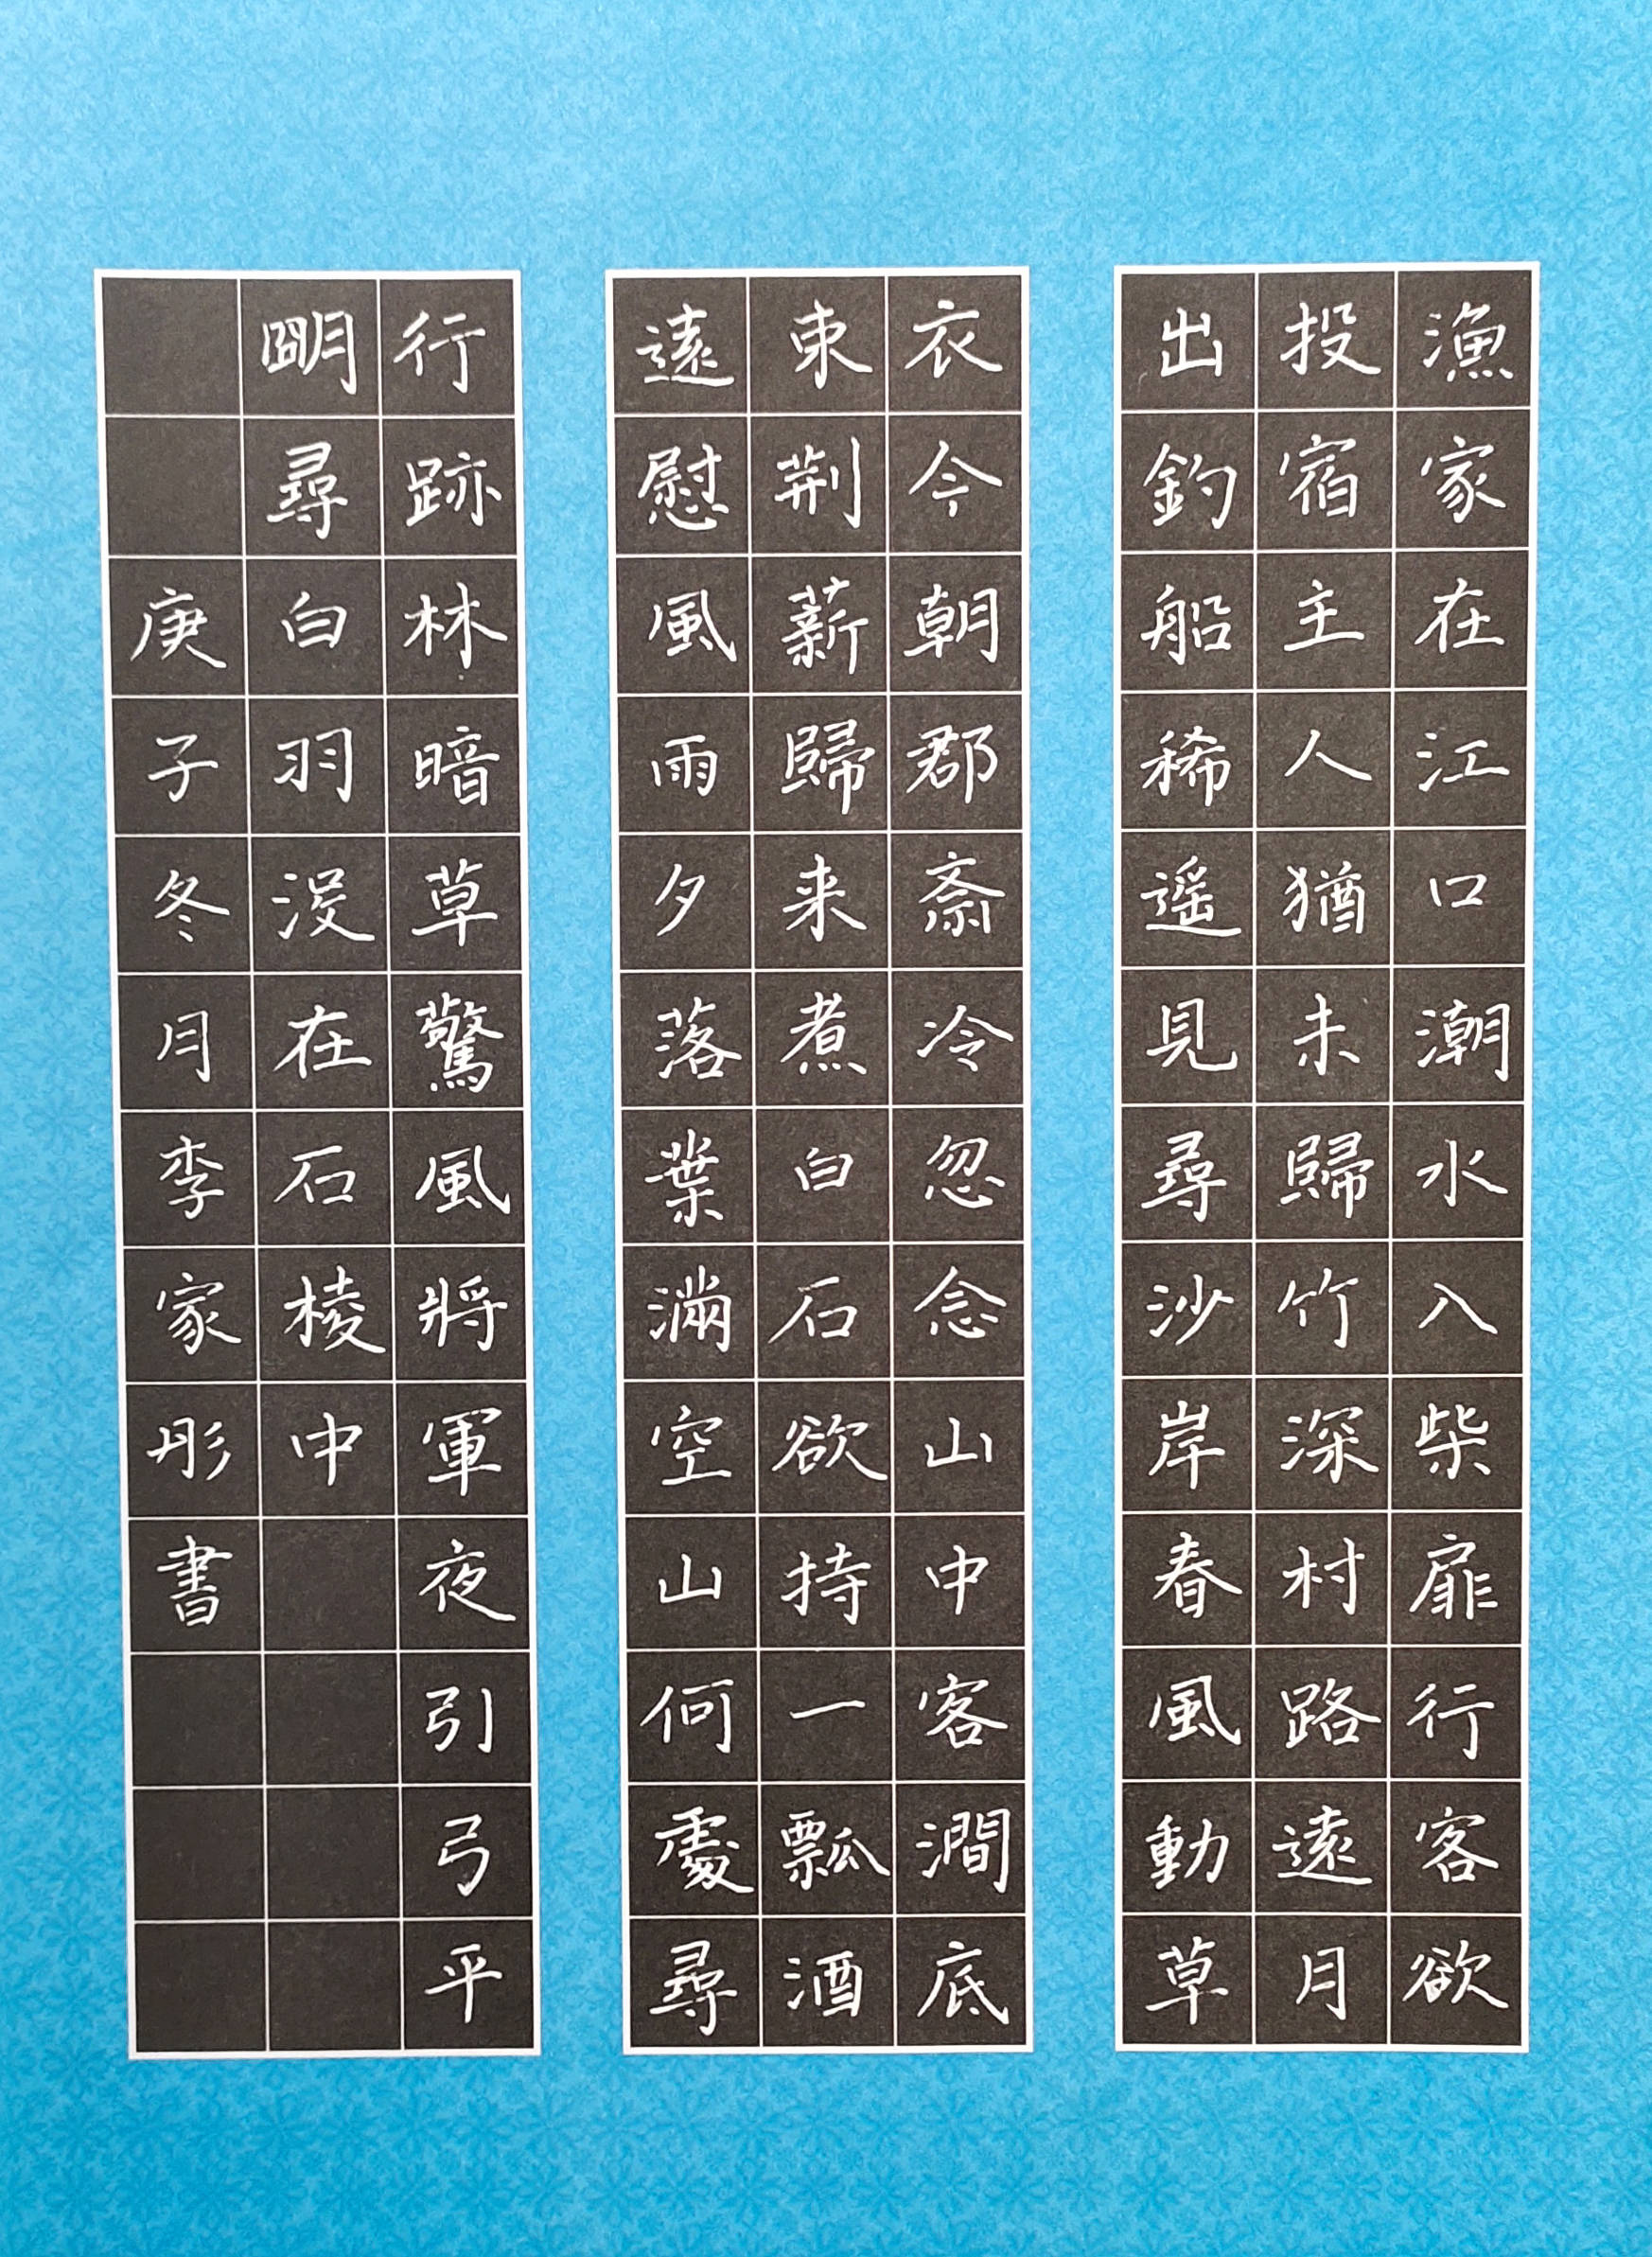 漁家在江口潮水入柴扉行客欲
投宿主人猶未歸竹深村路遠月
出釣船稀遥見尋沙岸春風動草
衣今朝郡斎冷忽念山中客澗底
束荆薪歸来煮白石欲持一瓢酒
遠慰風雨夕落葉滿空山何處尋
行跡林暗草驚風將軍夜引弓平
明尋白羽没在石棱中
庚子冬月李家彤書